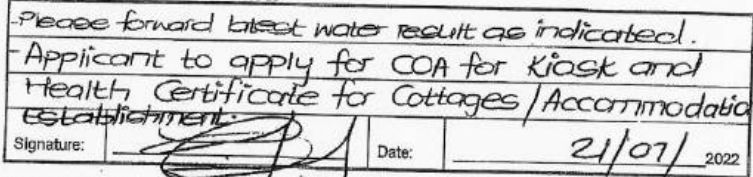 -Please forward latest water result as indicated.
-Applicant to apply for COA for Kiosk and
Health Certificate for Cottages/Accommodatio
Establishment.
Signature: Date: 21/07/2022